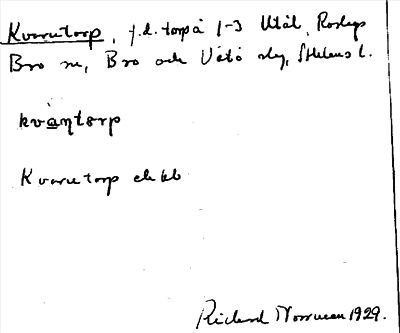 Kvarntorp, f.d. torp å 1-3 Utål, Roslags
Bro sn, Bro och Vätö slg, Sthlms l.
kvàṇtɷrp
Kvarntorp ekbl
Richard Norrman 1929.